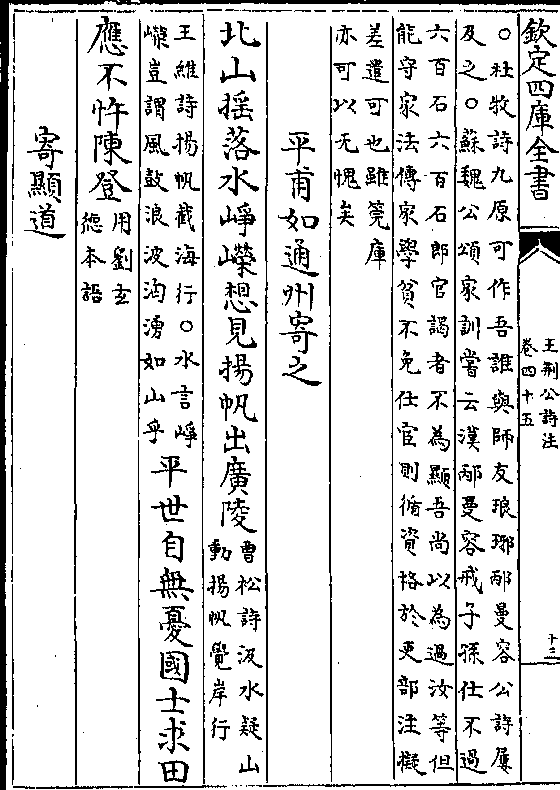 欽定四庫全書
王荆公詩注
卷四十五
十三
○杜牧詩九原可作吾誰與師友琅琊邴曼容公詩屢
及之○蘇魏公頌家訓嘗云漢邴曼容戒子孫仕不過
六百石六百石郎官謁者不為顯吾尚以為過汝等但
能守家法傳家學貧不免仕宦則循資格於吏部注擬
差遣可也雖筦庫
亦可以无愧矣
平甫如通州寄之
北山揺落水崢嶸想見揚帆出廣陵
曹松詩汲水疑山
動揚帆覺岸行
王維詩揚帆截海行○水言崢
嶸豈謂風鼓浪波洶湧如山乎
平世自無憂國士求田
應不忤陳登
用劉玄
德本語
寄顯道